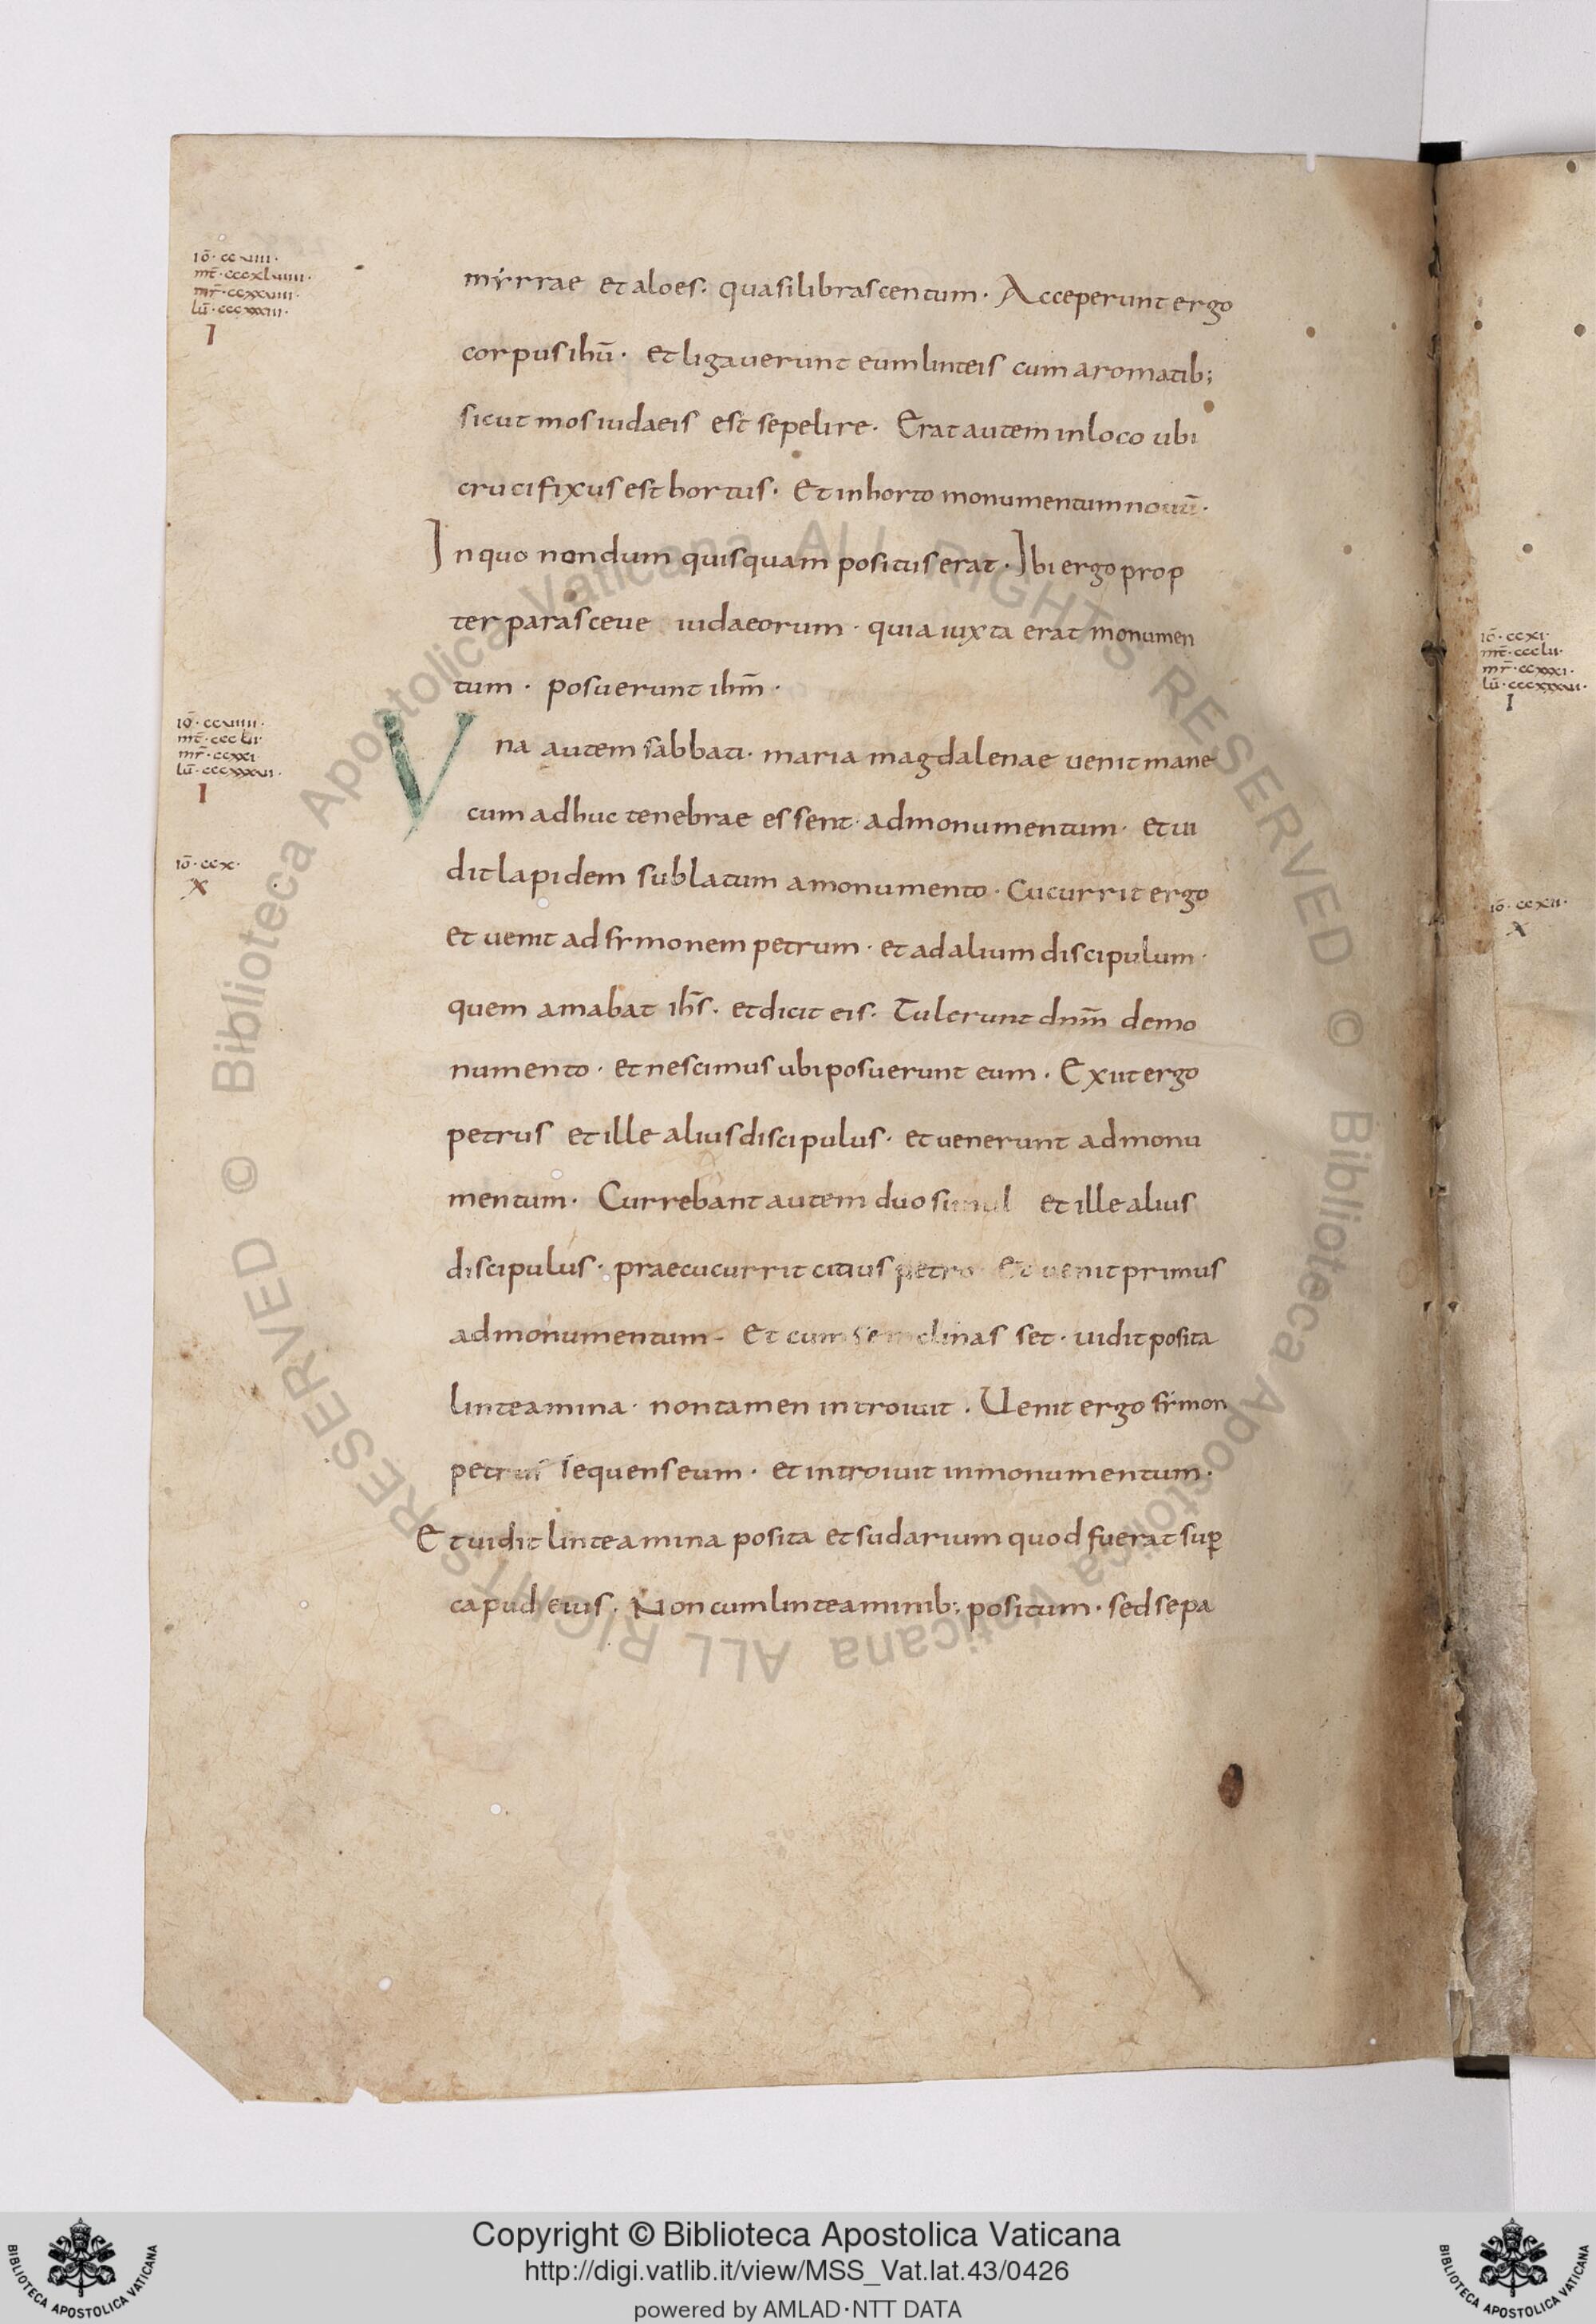 iō · ccviiii ·
mt̄ · cccxlviiii ·
mr̄ · ccxxviiii ·
lū · cccxxxiii ·
I
myrrae et aloes · quasi libras centum · Acceperunt ergo
corpus ihū · et ligaverunt eum linteis cum aromatib;
sicut mos iudaeis est sepelire · Erat autem in loco ubi
crucifixus est hortus · Et in horto monumentum nouū ·
In quo nondum quisquam positus erat · Ibi ergo prop
ter parasceue iudaeorum · quia iuxta erat monumen
tum · posuerunt ihm̄ ·
iō · ccviiii ·
mt̄ · ccclii ·
mr̄ · ccxxxi ·
lū · cccxxxvi ·
I
Vna autem sabbati · maria magdalenae uenit mane
cum adhuc tenebrae essent · ad monumentum · et ui
iō · ccx ·
X
dit lapidem sublatum a monumento · Cucurrit ergo
et uenit ad symonem petrum · et ad alium discipulum ·
quem amabat ihs̄ · et dicit eis · Tulerunt dnm̄ de mo
numento · et nescimus ubi posuerunt eum · Exiit ergo
petrus et ille alius discipulus · et uenerunt ad monu
mentum · Currebant autem duo simul et ille alius
discipulus · praecucurrit citius petro et uenit primus
ad monumentum · Et cum se inclinasset · uidit posita
linteamina · non tamen introiuit · Uenit ergo symon
petrus sequens eum · et introiuit in monumentum ·
Et uidit linteamina posita et sudarium quod fuerat suꝑ
capud eius · Non cum linteaminib; positum · sed sepa
iō · ccxi ·
mt̄ · ccclii ·
mr̄ · ccxxxi ·
lū · cccxxxvi ·
I
iō · ccxii ·
X
© Biblioteca Apostolica Vaticana ALL RIGHTS RESERVED
© Biblioteca Apostolica Vaticana ALL RIGHTS RESERVED
Copyright © Biblioteca Apostolica Vaticana
http://digi.vatlib.it/view/MSS_Vat.lat.43/0426
powered by AMLAD·NTT DATA
BIBLIOTECA APOSTOLICA VATICANA
BIBLIOTECA APOSTOLICA VATICANA